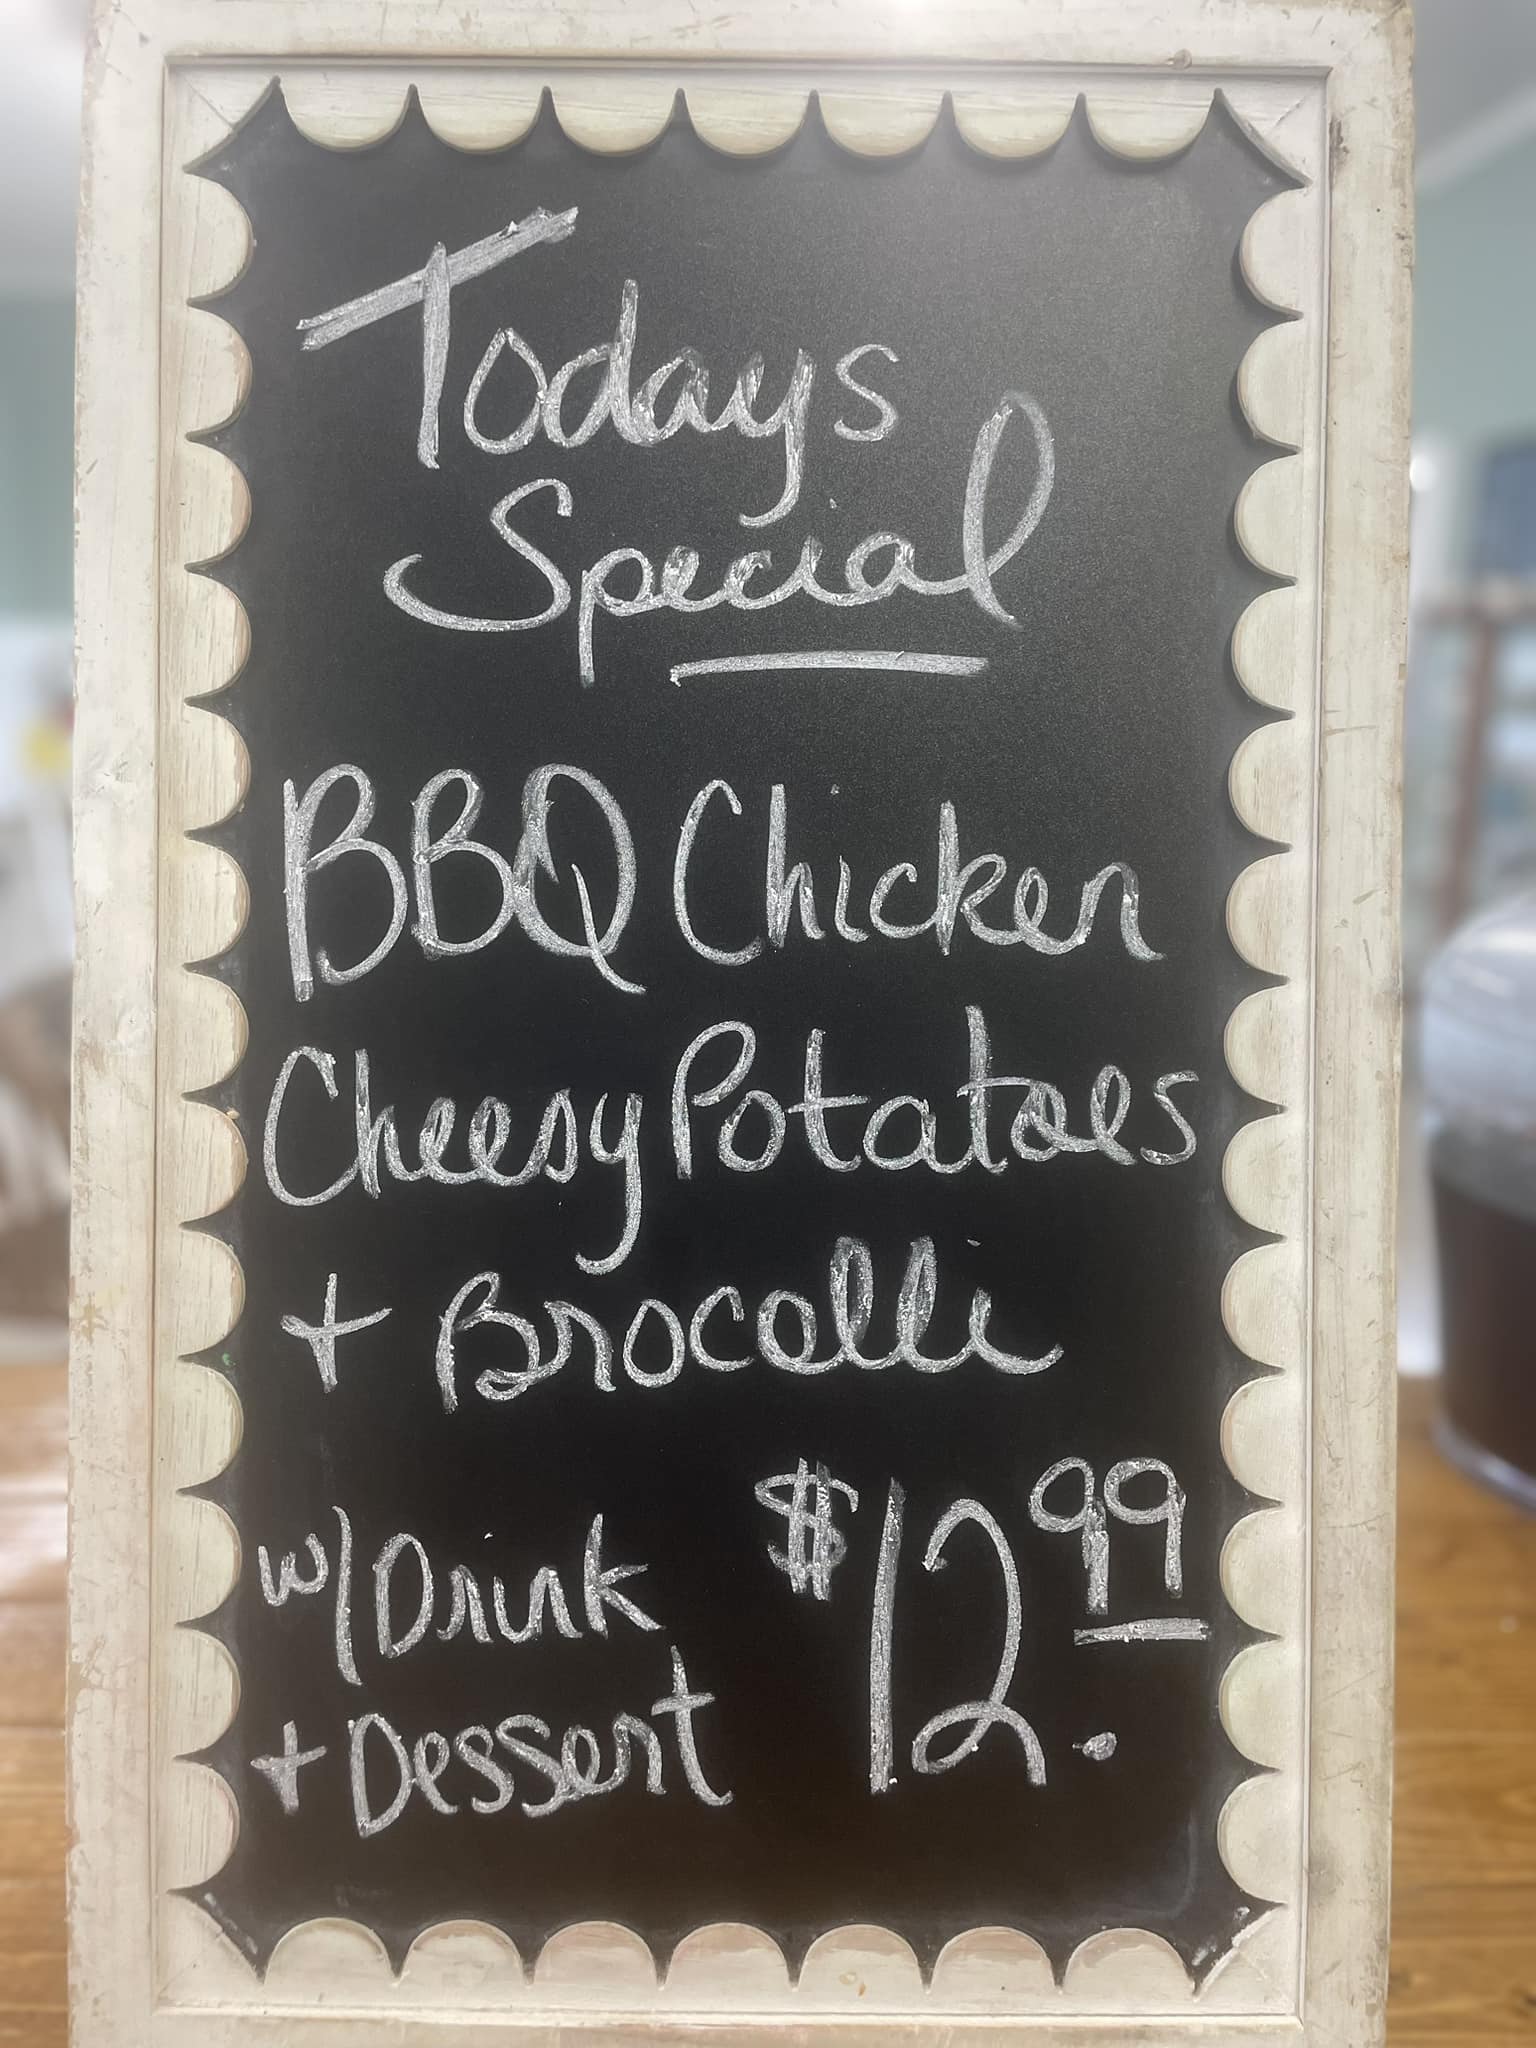 Todays
Special
BBQ Chicken
Cheesy Potatoes
+ Brocolli
w/ Drink
+ Dessert
$12.99